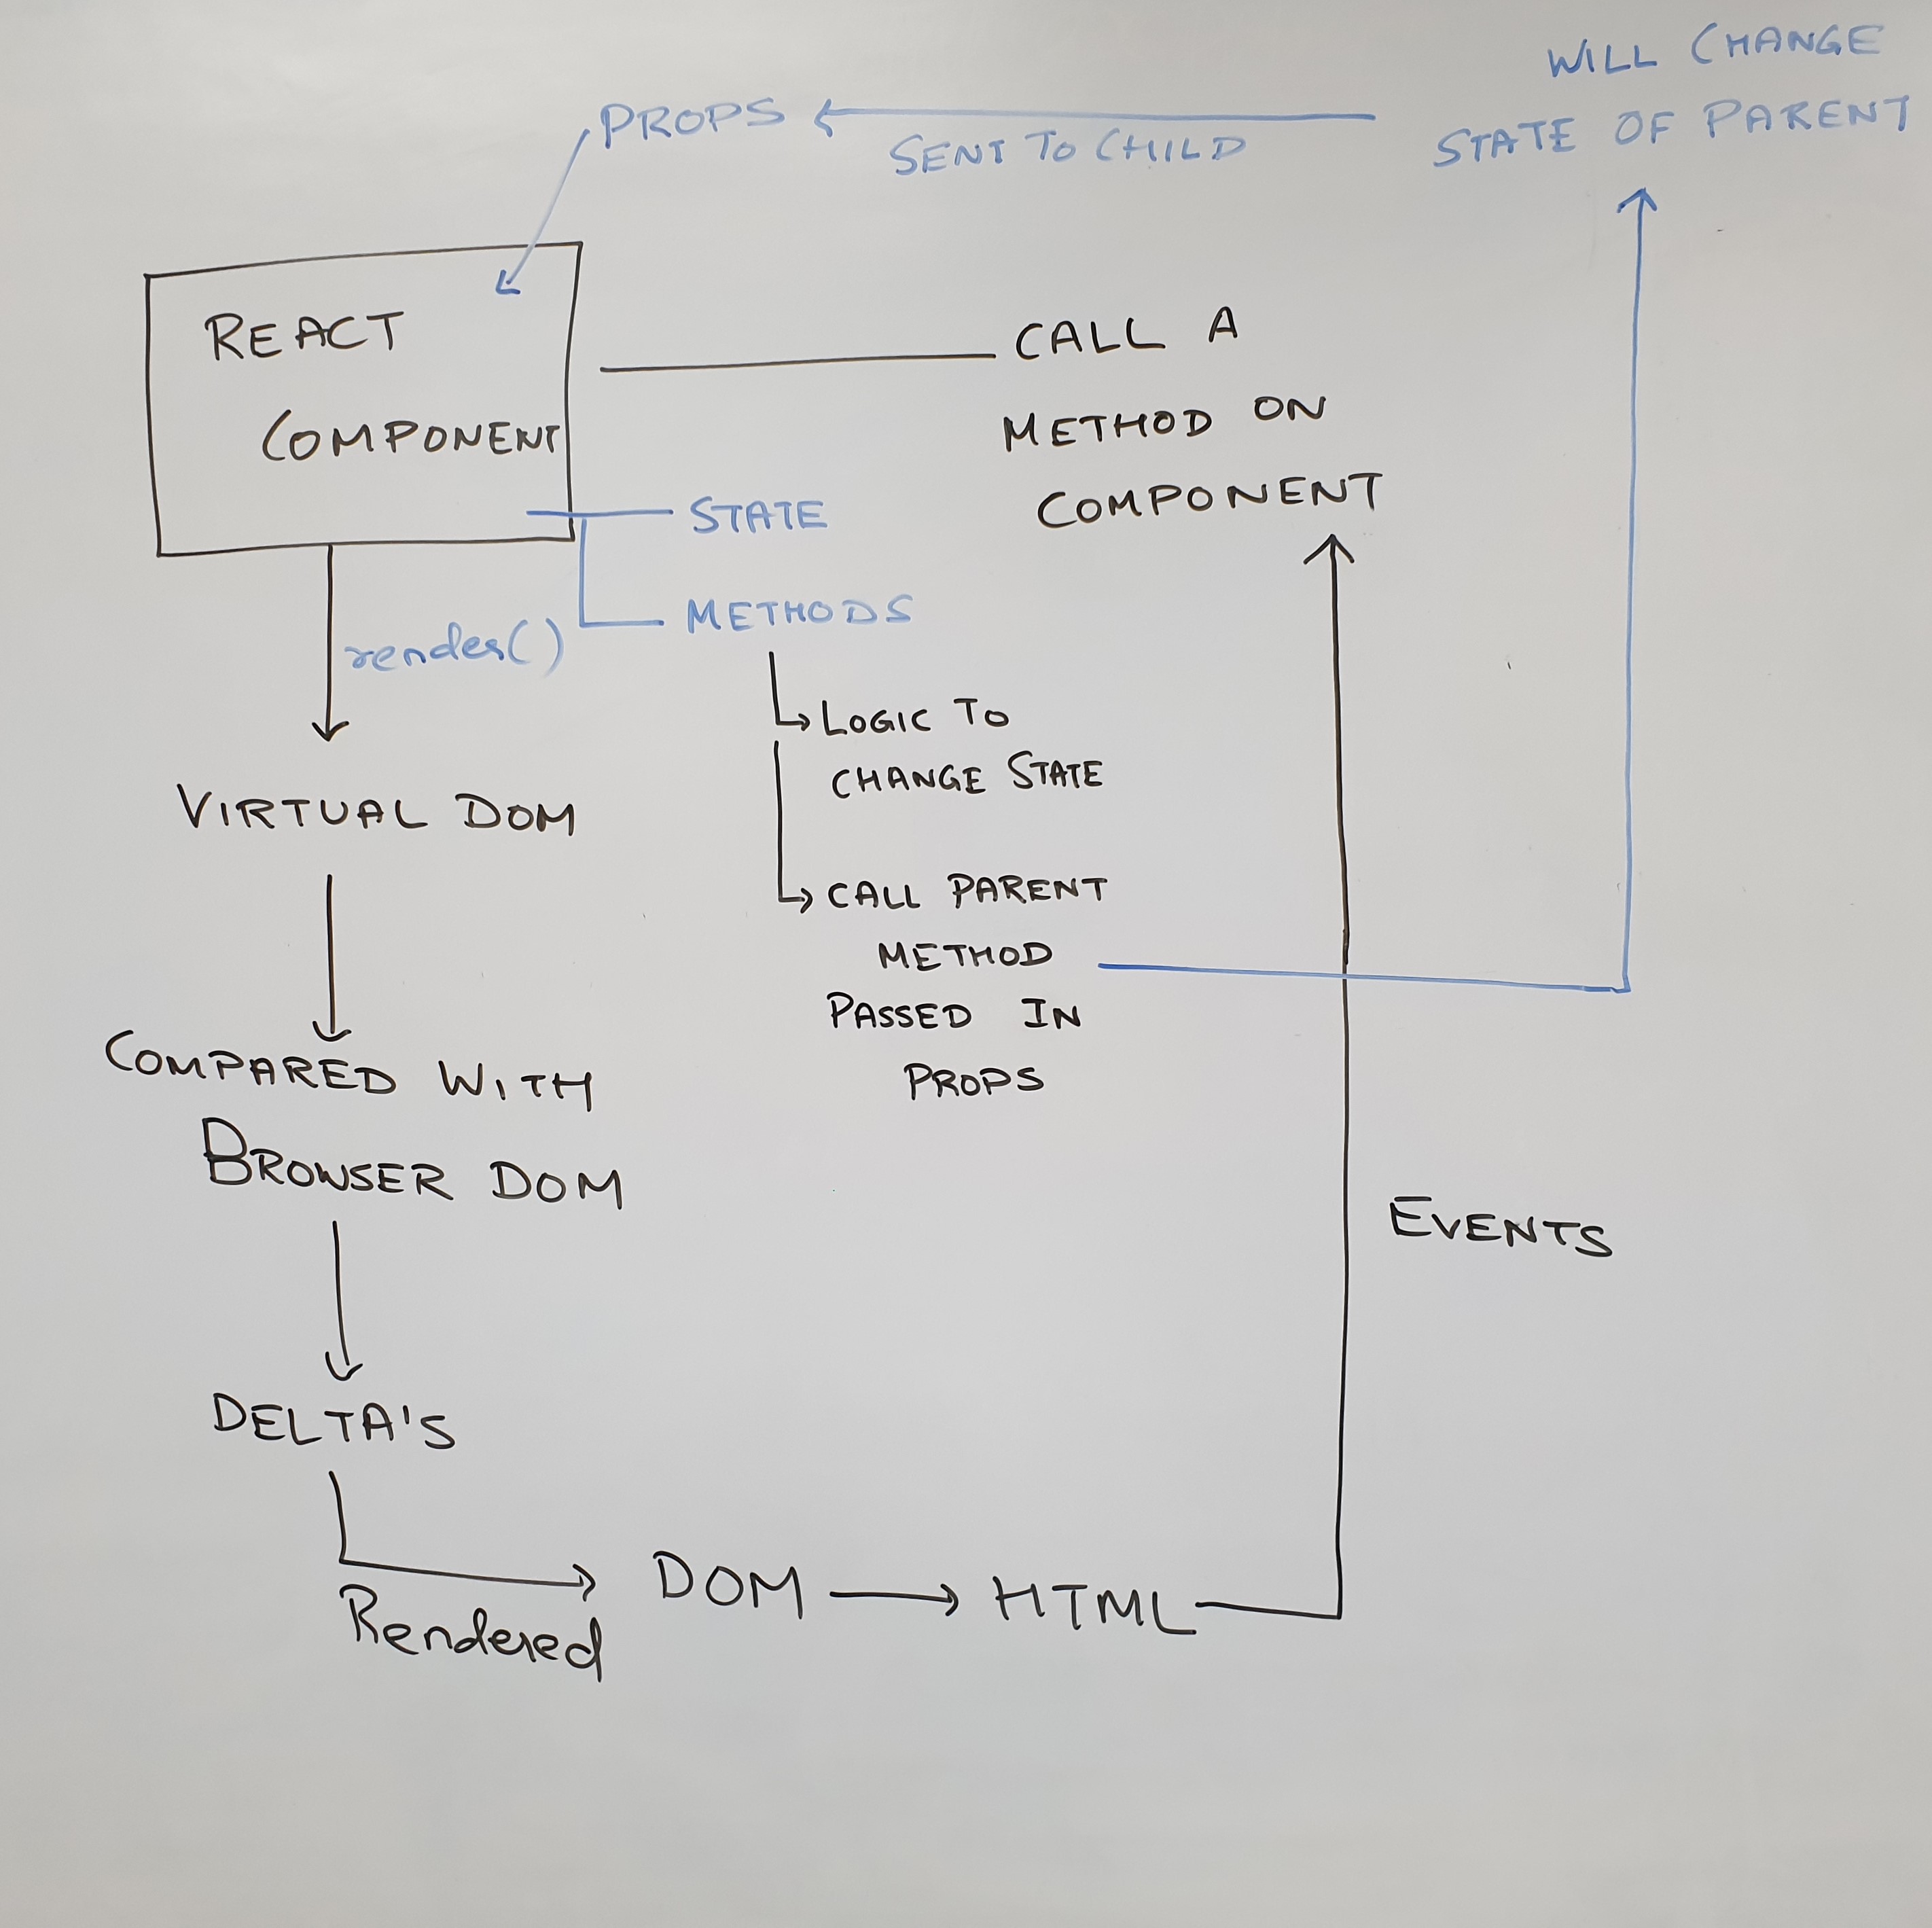 WILL CHANGE
STATE OF PARENT
PROPS
SENT TO CHILD
REACT
COMPONENT
CALL A
METHOD ON
COMPONENT
STATE
METHODS
render()
LOGIC TO
CHANGE STATE
VIRTUAL DOM
CALL PARENT
METHOD
PASSED IN
PROPS
COMPARED WITH
BROWSER DOM
EVENTS
DELTA'S
Rendered
DOM
HTML